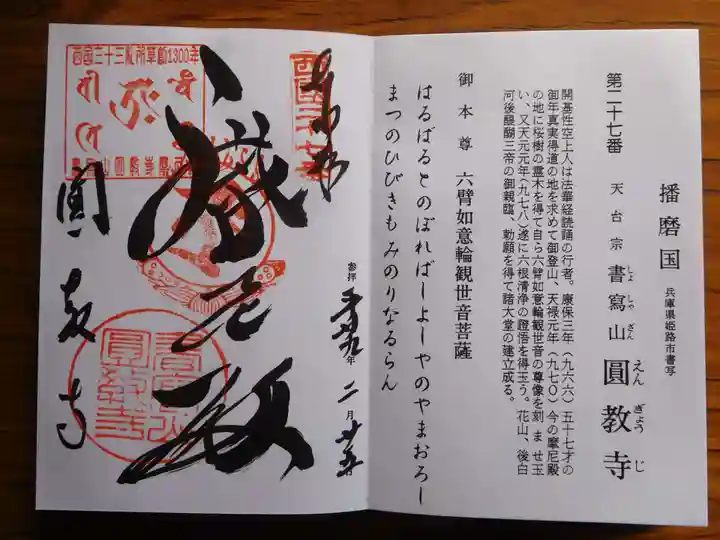 播磨国 兵庫県姫路市書写
第二十七番 天台宗 書寫山 圓教寺
しょ しゃ ざん えん ぎょう じ
開基性空上人は法華経読誦の行者。康保三年(九六六)五十七才の
御年真実得道の地を求めて御登山、天禄元年(九七〇)今の摩尼殿
の地に桜樹の霊木を得て自ら六臂如意輪観世音の尊像を刻ませ玉
い、又天元元年(九七八)遂に六根清浄の證悟を得玉う。花山、後白
河後醍醐三帝の御親臨、勅願を得て諸大堂の建立成る。
御本尊 六臂如意輪観世音菩薩
はるばるとのぼればしよしやのやまおろし
まつのひびきもみのりなるらん
西国三十三所草創1300年
参拝
年 二月
摩尼殿
圓教寺